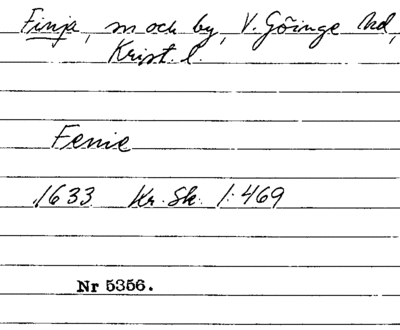 Finja, sn och by, V. Göinge hd,
Krist. l.
Fenie
1633 Kr. Sk. 1:469
Nr 5356.